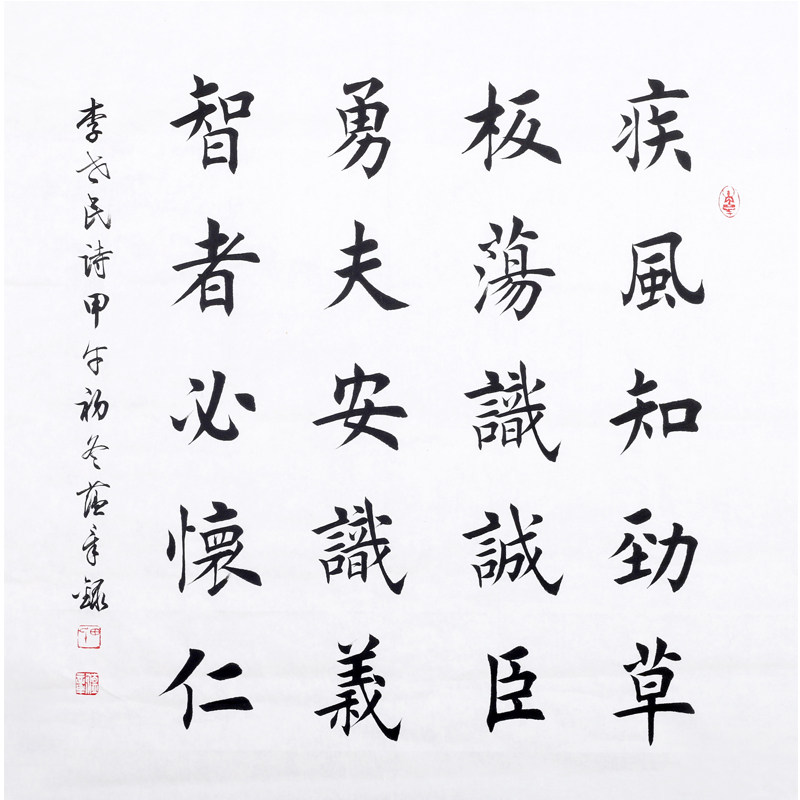 疾風知勁草
板蕩識誠臣
勇夫安識義
智者必懷仁
李世民诗甲午初冬蓝章錄